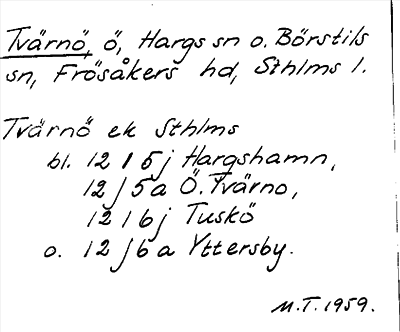 Tvärnö, ö, Hargs sn o. Börstils
sn, Frösåkers hd, Sthlms l.
Tvärnö ek Sthlms
bl. 12 I 5 j Hargshamn,
12 J 5 a Ö. Tvärno,
12 I 6 j Tuskö
o. 12 J 6 a Yttersby.
M.T. 1959.